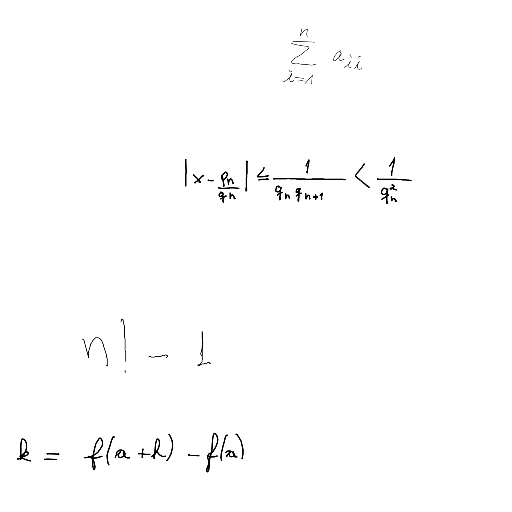 \sum_{i=1}^{n} a_{ii}
\left| x - \frac{p_n}{q_n} \right| \leq \frac{1}{q_n q_{n+1}} < \frac{1}{q_n^2}
n! - 1
k = f(a+h) - f(a)